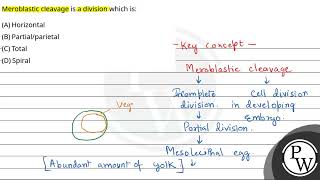 Meroblastic cleavage is a division which is:
(A) Horizontal
(B) Partial/parietal
(C) Total
(D) Spiral
- Key concept -
Meroblastic cleavage
Incomplete division.
Cell division in developing Embryo.
Partial division.
Mesolecithal egg
[Abundant amount of yolk]
Veg
PW